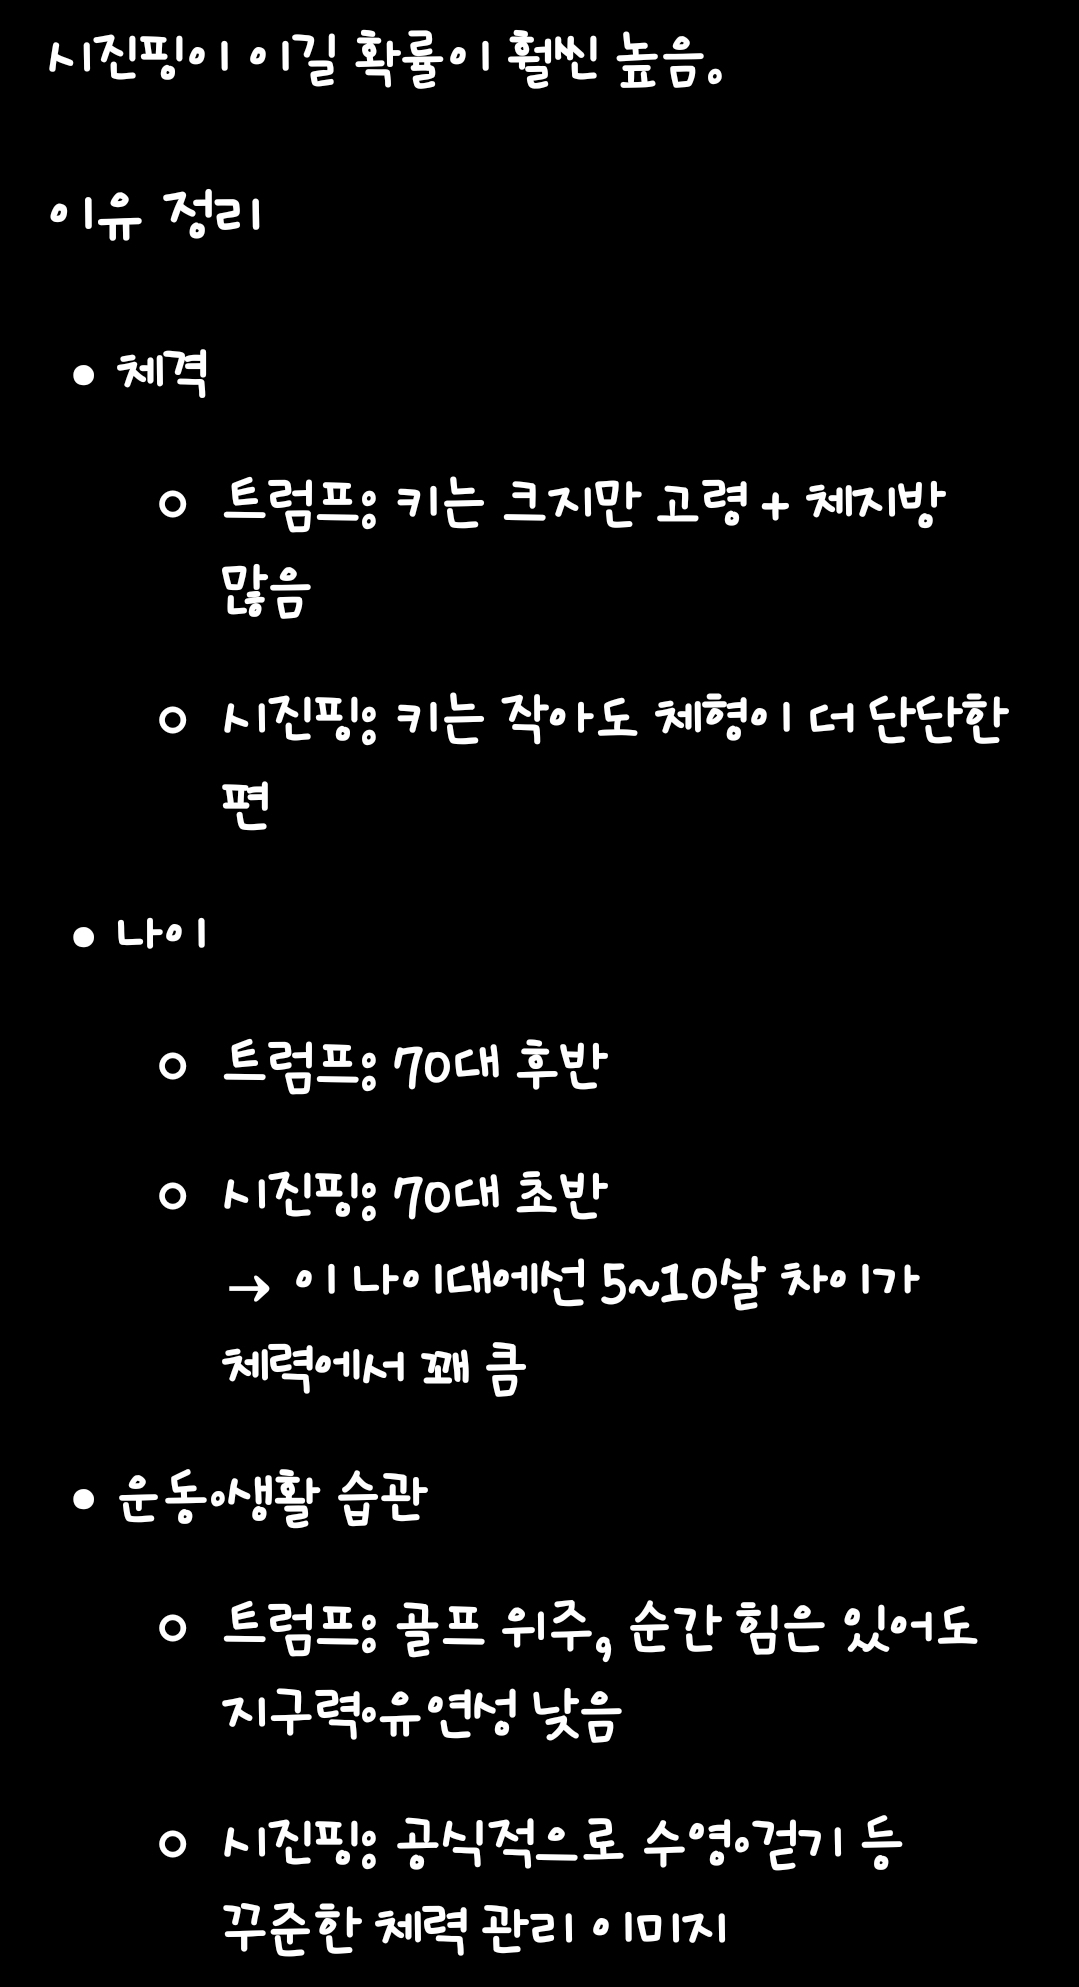 시진핑이 이길 확률이 훨씬 높음.
이유 정리
• 체격
○ 트럼프: 키는 크지만 고령 + 체지방
많음
○ 시진핑: 키는 작아도 체형이 더 단단한
편
• 나이
○ 트럼프: 70대 후반
○ 시진핑: 70대 초반
→ 이 나이대에선 5~10살 차이가
체력에서 꽤 큼
• 운동·생활 습관
○ 트럼프: 골프 위주, 순간 힘은 있어도
지구력·유연성 낮음
○ 시진핑: 공식적으로 수영·걷기 등
꾸준한 체력 관리 이미지